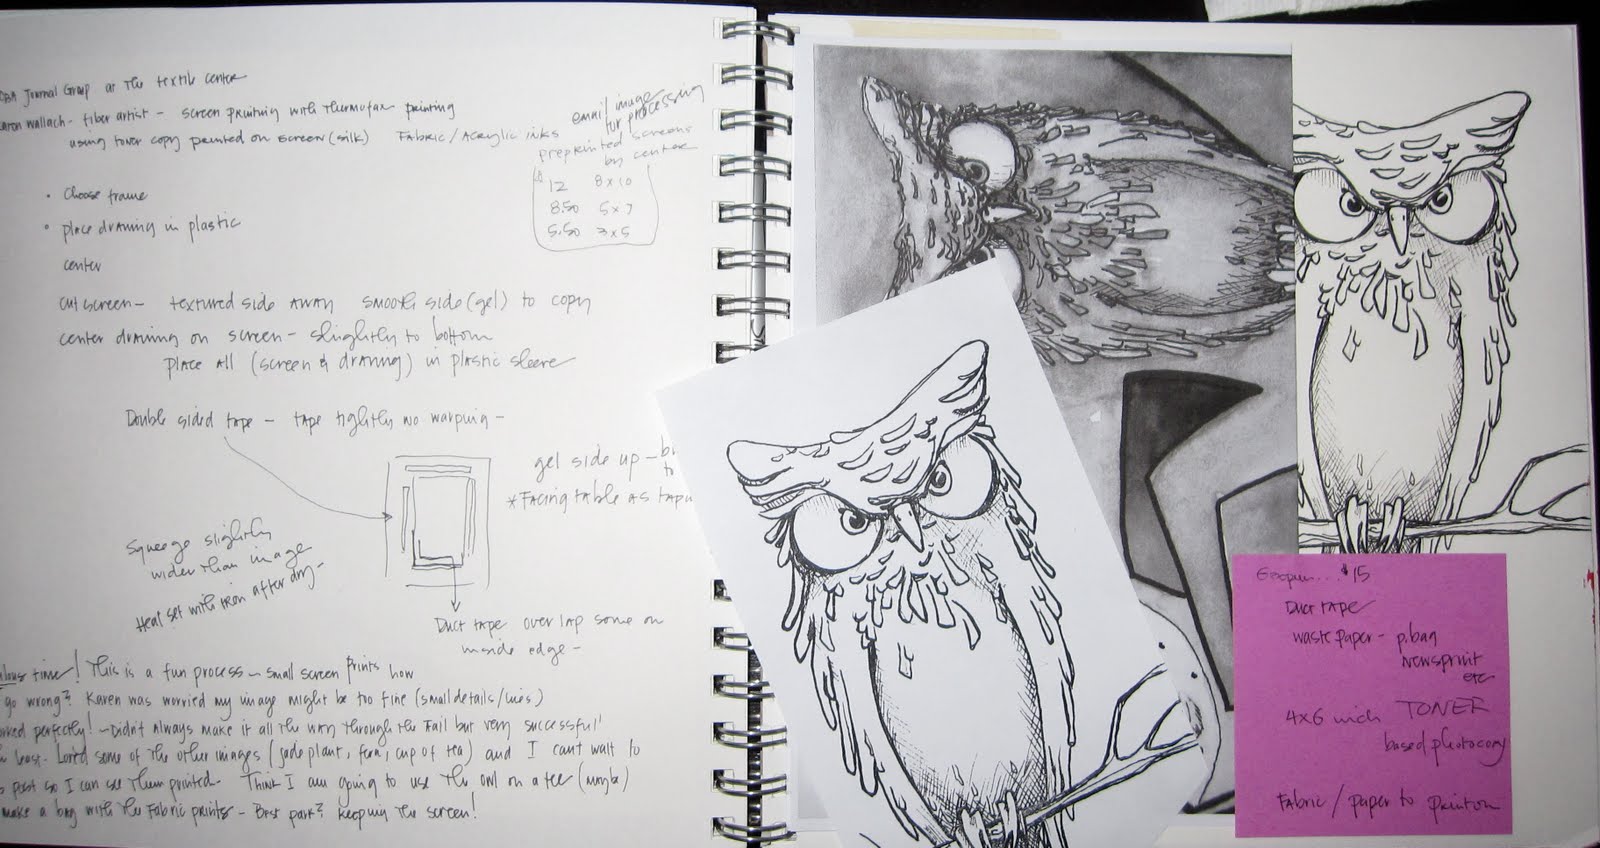 CBA Journal Group at the textile center
Karen Wallach - fiber artist - screen printing with Thermofax printing
using toner copy printed on screen (silk) Fabric/Acrylic inks
email image
for processing
preprinted screens
by center
12 8x10
8.50 5x7
5.50 3x5
• Choose frame
• place drawing in plastic
center
cut screen - textured side away smooth side (gel) to copy
center drawing on screen - slightly to bottom
place all (screen & drawing) in plastic sleeve
Double sided tape - tape tightly no warping -
gel side up -
to
*Facing table as tape
Squeege slightly
wider than image
Heat set with iron after dry -
Duct tape overlap some on
inside edge -
time! This is a fun process - small screen prints how
go wrong? Karen was worried my image might be too fine (small details/lines)
worked perfectly! - Didn't always make it all the way through the tail but very successful!
least. Loved some of the other images (jade plant, fern, cup of tea) and I can't wait to
post so I can see them printed. Think I am going to use the owl on a tee (maybe)
make a bag with the fabric prints - Best part? keeping the screen!
$15
Duct tape
waste paper - p.bag
Newsprint
etc
4x6 inch TONER
based photocopy
Fabric / paper to print on